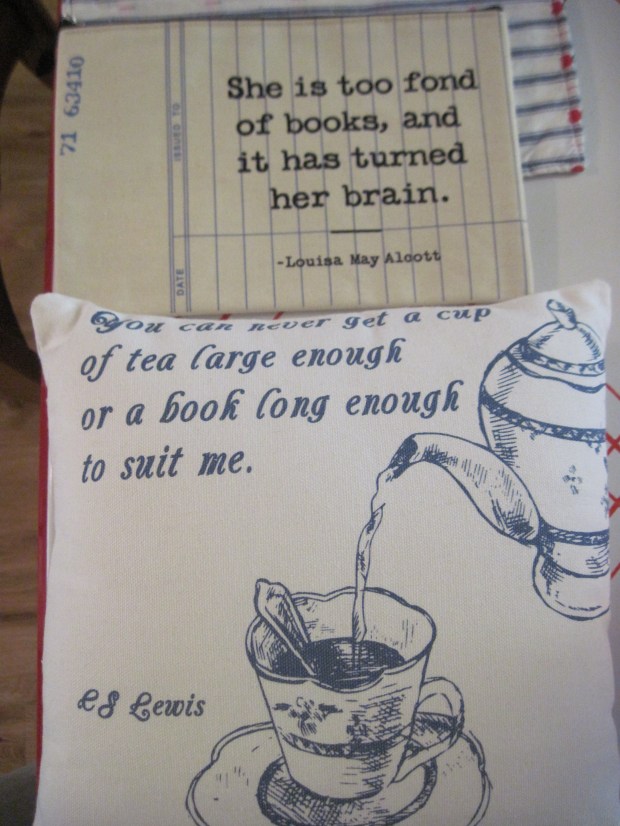 71 63410
ISSUED TO
DATE
She is too fond
of books, and
it has turned
her brain.
-Louisa May Alcott
You can never get a cup
of tea large enough
or a book long enough
to suit me.
CS Lewis